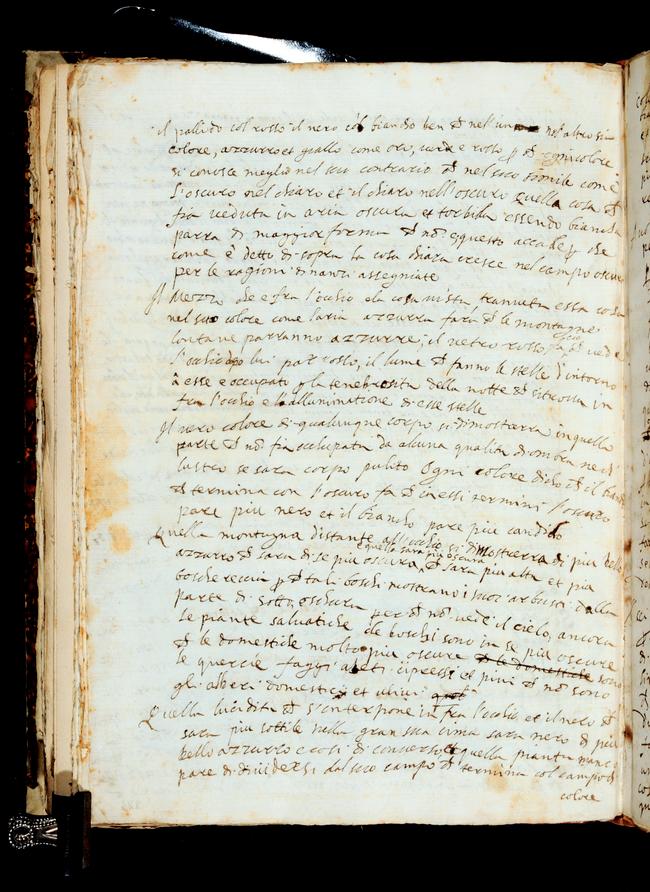 il pallido col rosso il nero col biancho ben ch nell'uno ne l'altro sia
colore, azzurro et giallo come oro, verde e rosso ogni colore
si conosce meglio nel suo contrario ch nel suo simile come
l'oscuro nel chiaro et il chiaro nell'oscuro Quella cosa ch
fia veduta in aria oscura et torbida essendo biancha
parra di maggior forma ch nõ è questo accade che
come è detto di sopra la cosa chiara cresce nel campo oscuro
per le ragioni dinanzi assegniate
Il Mezzo che e fra l'ochio e la cosa vista tramuta essa cosa
nel suo colore come l'aria azzurra fara ch le montagne
lontane parranno azzurre; il vetro rosso fa ch vede
l'ochio lui par rosso, il lume ch fanno le stelle d'intorno
à esse e occupato la tenebrosita della notte ch si trova in
fra l'ochio e l'alluminatione di esse stelle
Il vero colore di qualunque corpo si dimosterra in quella
parte ch nõ fia occupata da alcuna qualita d'ombra ne di
lustro se sara corpo pulito Ogni colore dico ch il bianco
ch termina con l'oscuro fa ch in essi termini l'oscuro
pare piu nero et il biancho pare piu candido
Quella montagna distante all'ochio si dimosterra di piu bello
azzurro ch sara di se piu oscura, e quella sara piu oscura ch sara piu alta et piu
boschereccia ch tali boschi mostrano i suoi arbusci dalla
parte di sotto oschura per ch nõ vede il cielo, ancora
le piante salvatiche de boschi sono in se piu oscure
ch le domestiche molto piu oscure ch le domestiche sono
le quercie faggi abeti cipressi et pini ch nõ sono
gli alberi domestici et ulivi
Quella lucidita ch s'interpone in fra l'ochio et il nero ch
sara piu sottile nella gran sua cima fara nero di piu
bello azzurro e cosi di converso et quella pianta manco
pare di dividersi dal suo campo ch termina col campo di
colore